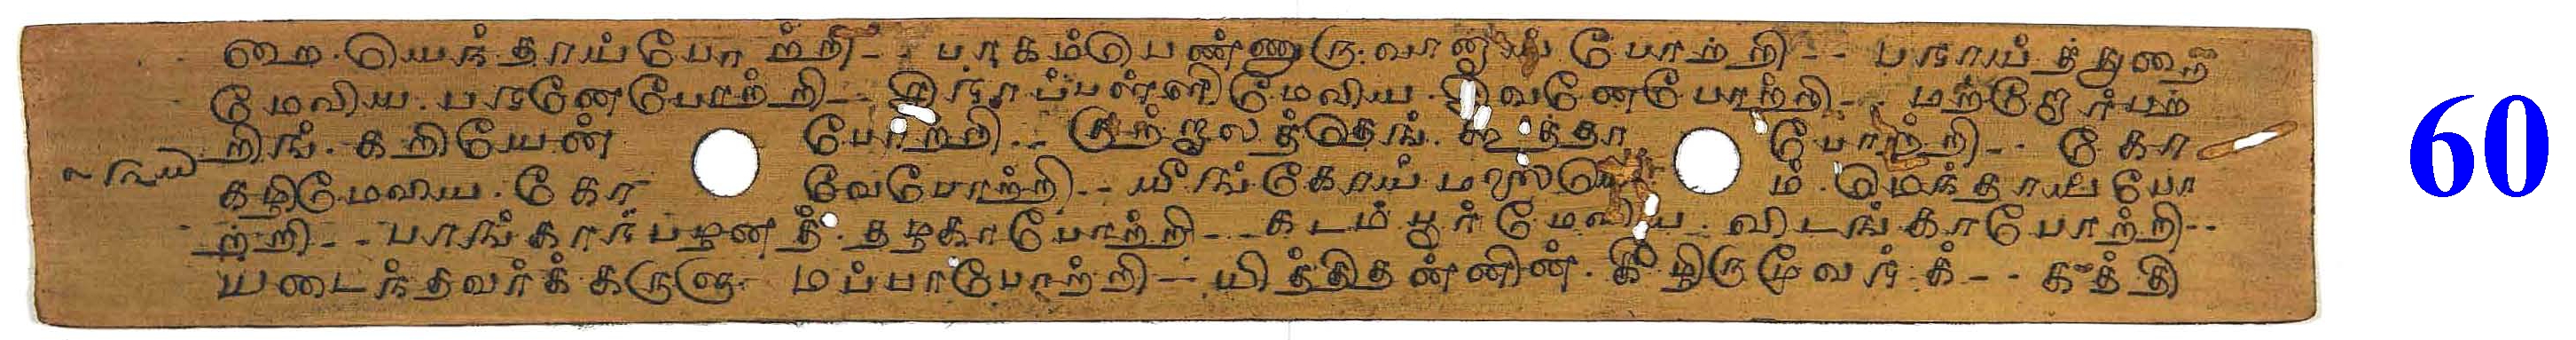 றை.யெந்தாய்போற்றி-- பாகம்பெண்ணுரு.வானாய் போற்றி-- பராய்த்துறை 60
மேவிய.பரனேபோற்றி-- சிராப்பள்ளிமேவிய.சிவனேபோற்றி-- மற்றோர்பற்
றிங்.கறியேன் போற்றி-- குற்றாலத்தெங்.கூத்தா போற்றி-- கோ
கழிமேவிய.கோ வேபோற்றி-- யீங்கோய்மலையெ ம்.மெந்தாய்போ
ற்றி-- பாங்கார்பழனத்.தழகாபோற்றி-- கடம்பூர்மேவிய.விடங்காபோற்றி--
யடைந்தவர்க்கருளு மப்பாபோற்றி-- யித்திதன்னின்.கீழிருமூவர்.க்-- கத்தி